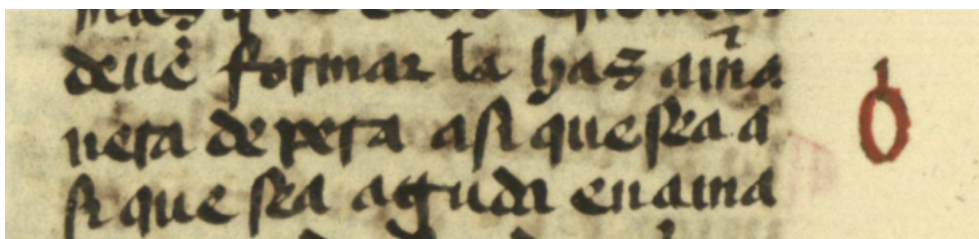 deuē formar la haz
nera de pera asi que sea a
si que sea aguda en ama